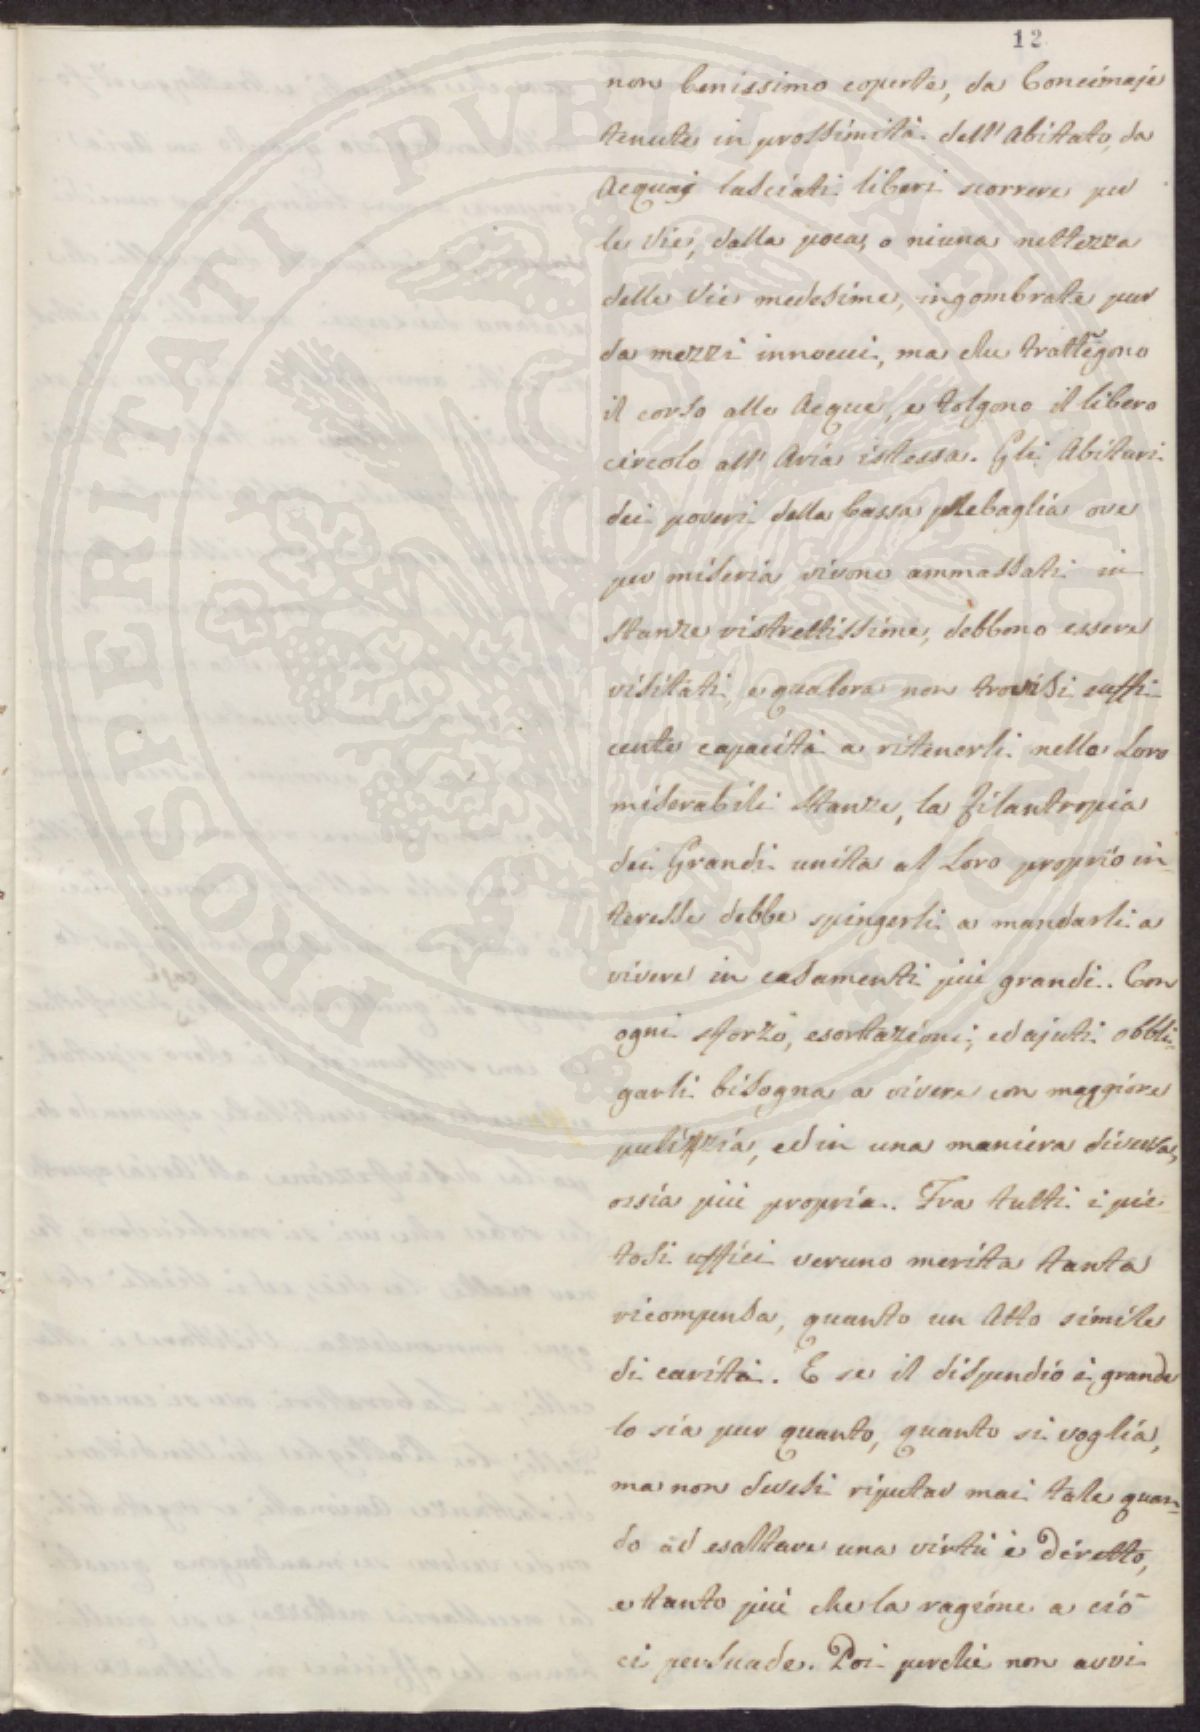 12
non benissimo coperte, da Concimaje
tenute in prossimità dell' Abittato, da
Acquaj lasciati liberi scorrere per
le Vie, dalla poca, o niuna nettezza
delle Vie medesime, ingombrate pur
da mezzi innocui, ma che trattẽgono
il corso alle Acque, e tolgono il libero
circolo all' Aria istessa. Gli Abituri
dei poveri della bassa plebaglia ove
per miseria vivono ammassati in
Stanze ristrettissime, debbono essere
visitati, e qualora non trovisi suffi-
cente capacità a ritenerli nelle Loro
miserabili Stanze, la filantropia
dei Grandi unita al Loro proprio in-
teresse debbe spingerli a mandarli a
vivere in casamenti più grandi. Con
ogni sforzo, esortazioni, ed ajuti obbli-
garli bisogna a vivere con maggiore
pulizzia, ed in una maniera diversa,
ossia più propria. Fra tutti i pie-
tosi uffici veruno meritta tanta
ricompensa, quanto un Atto simile
di carittà. E se il dispendio è grande
lo sia pur quanto, quanto si voglia,
ma non devesi riputar mai tale quan-
do ad esaltare una virtù è diretto,
e tanto più che la ragione a ciò
ci persuade. Poi perchè non avvi
PROSPERITATI PUBLICAE